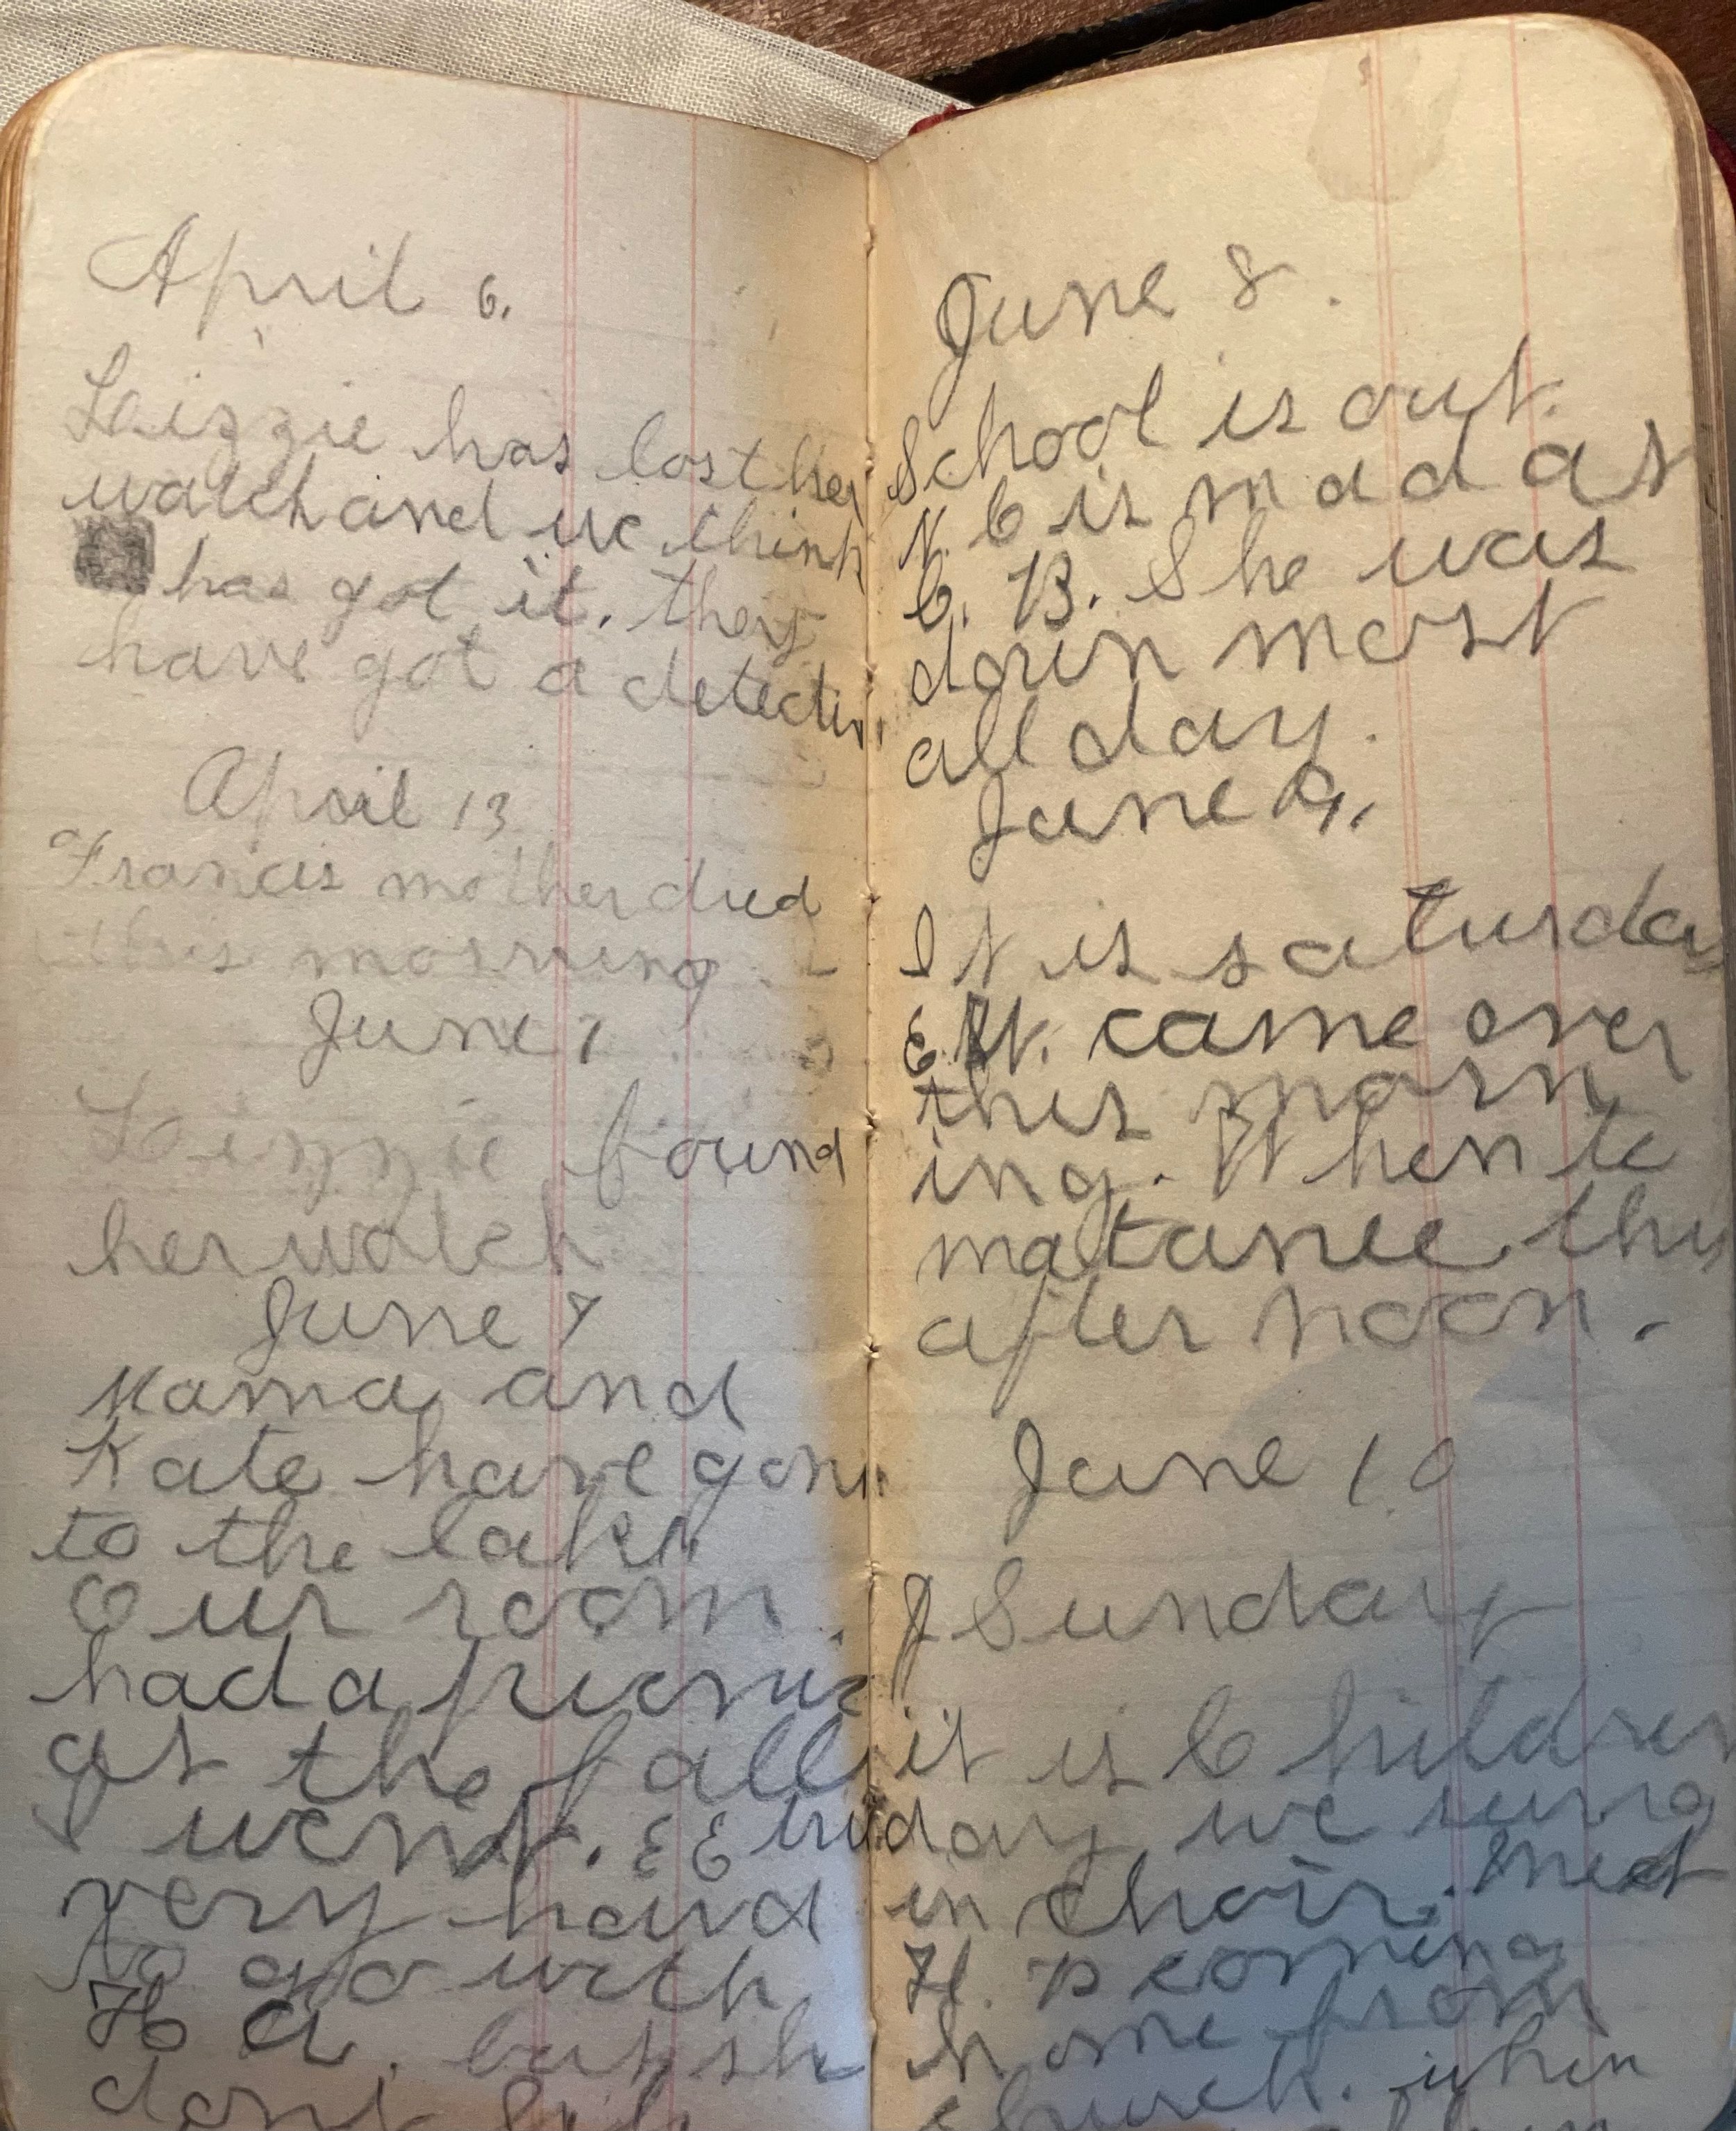 April 6.
Leizzie has lost her
watch and we think
has got it. they
have got a detectiv
April 13
Francis mother died
this morning.
June 7
Leizzie found
her watch
June 7
Mama and
Kate have gone
to the lake
Our room
had a picnic
at the falls
I went. E E tried
very hard
to go with
H a. but sh
dont
June 8.
School is out.
N. C is mad at
C. B. She was
down most
all day.
June 9,
It is saturday
E. W. came over
this morn
ing. When to
matanee this
after noon.
June 10
Sunday
it is Children
day we sung
in choir. Meet
H. P coming
home from
church. when